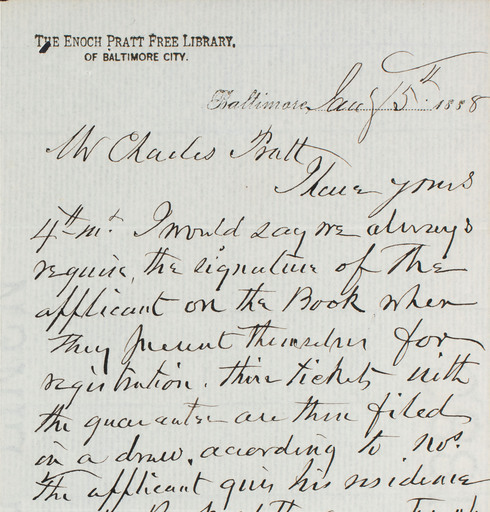 THE ENOCH PRATT FREE LIBRARY,
OF BALTIMORE CITY.
Baltimore, Jany 5th 1888
Mr Charles Pratt
I have yours
4th inst. I would say we always
require, the signature of the
applicant on the Book when
they present themselves for
registration. their tickets with
the guarantee are then filed
in a draw, according to nos.
the applicant givs his residence